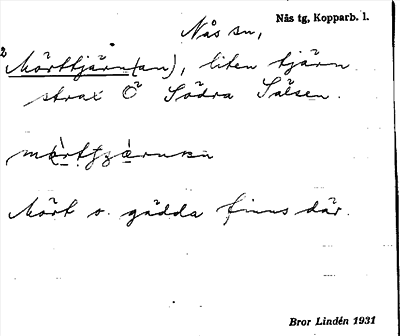 Nås sn,
Nås tg, Kopparb. l.
2
Mörttjärn(an), liten tjärn
strax Ö Södra Sälsen.
Mört o. gädda finns där.
Bror Lindén 1931